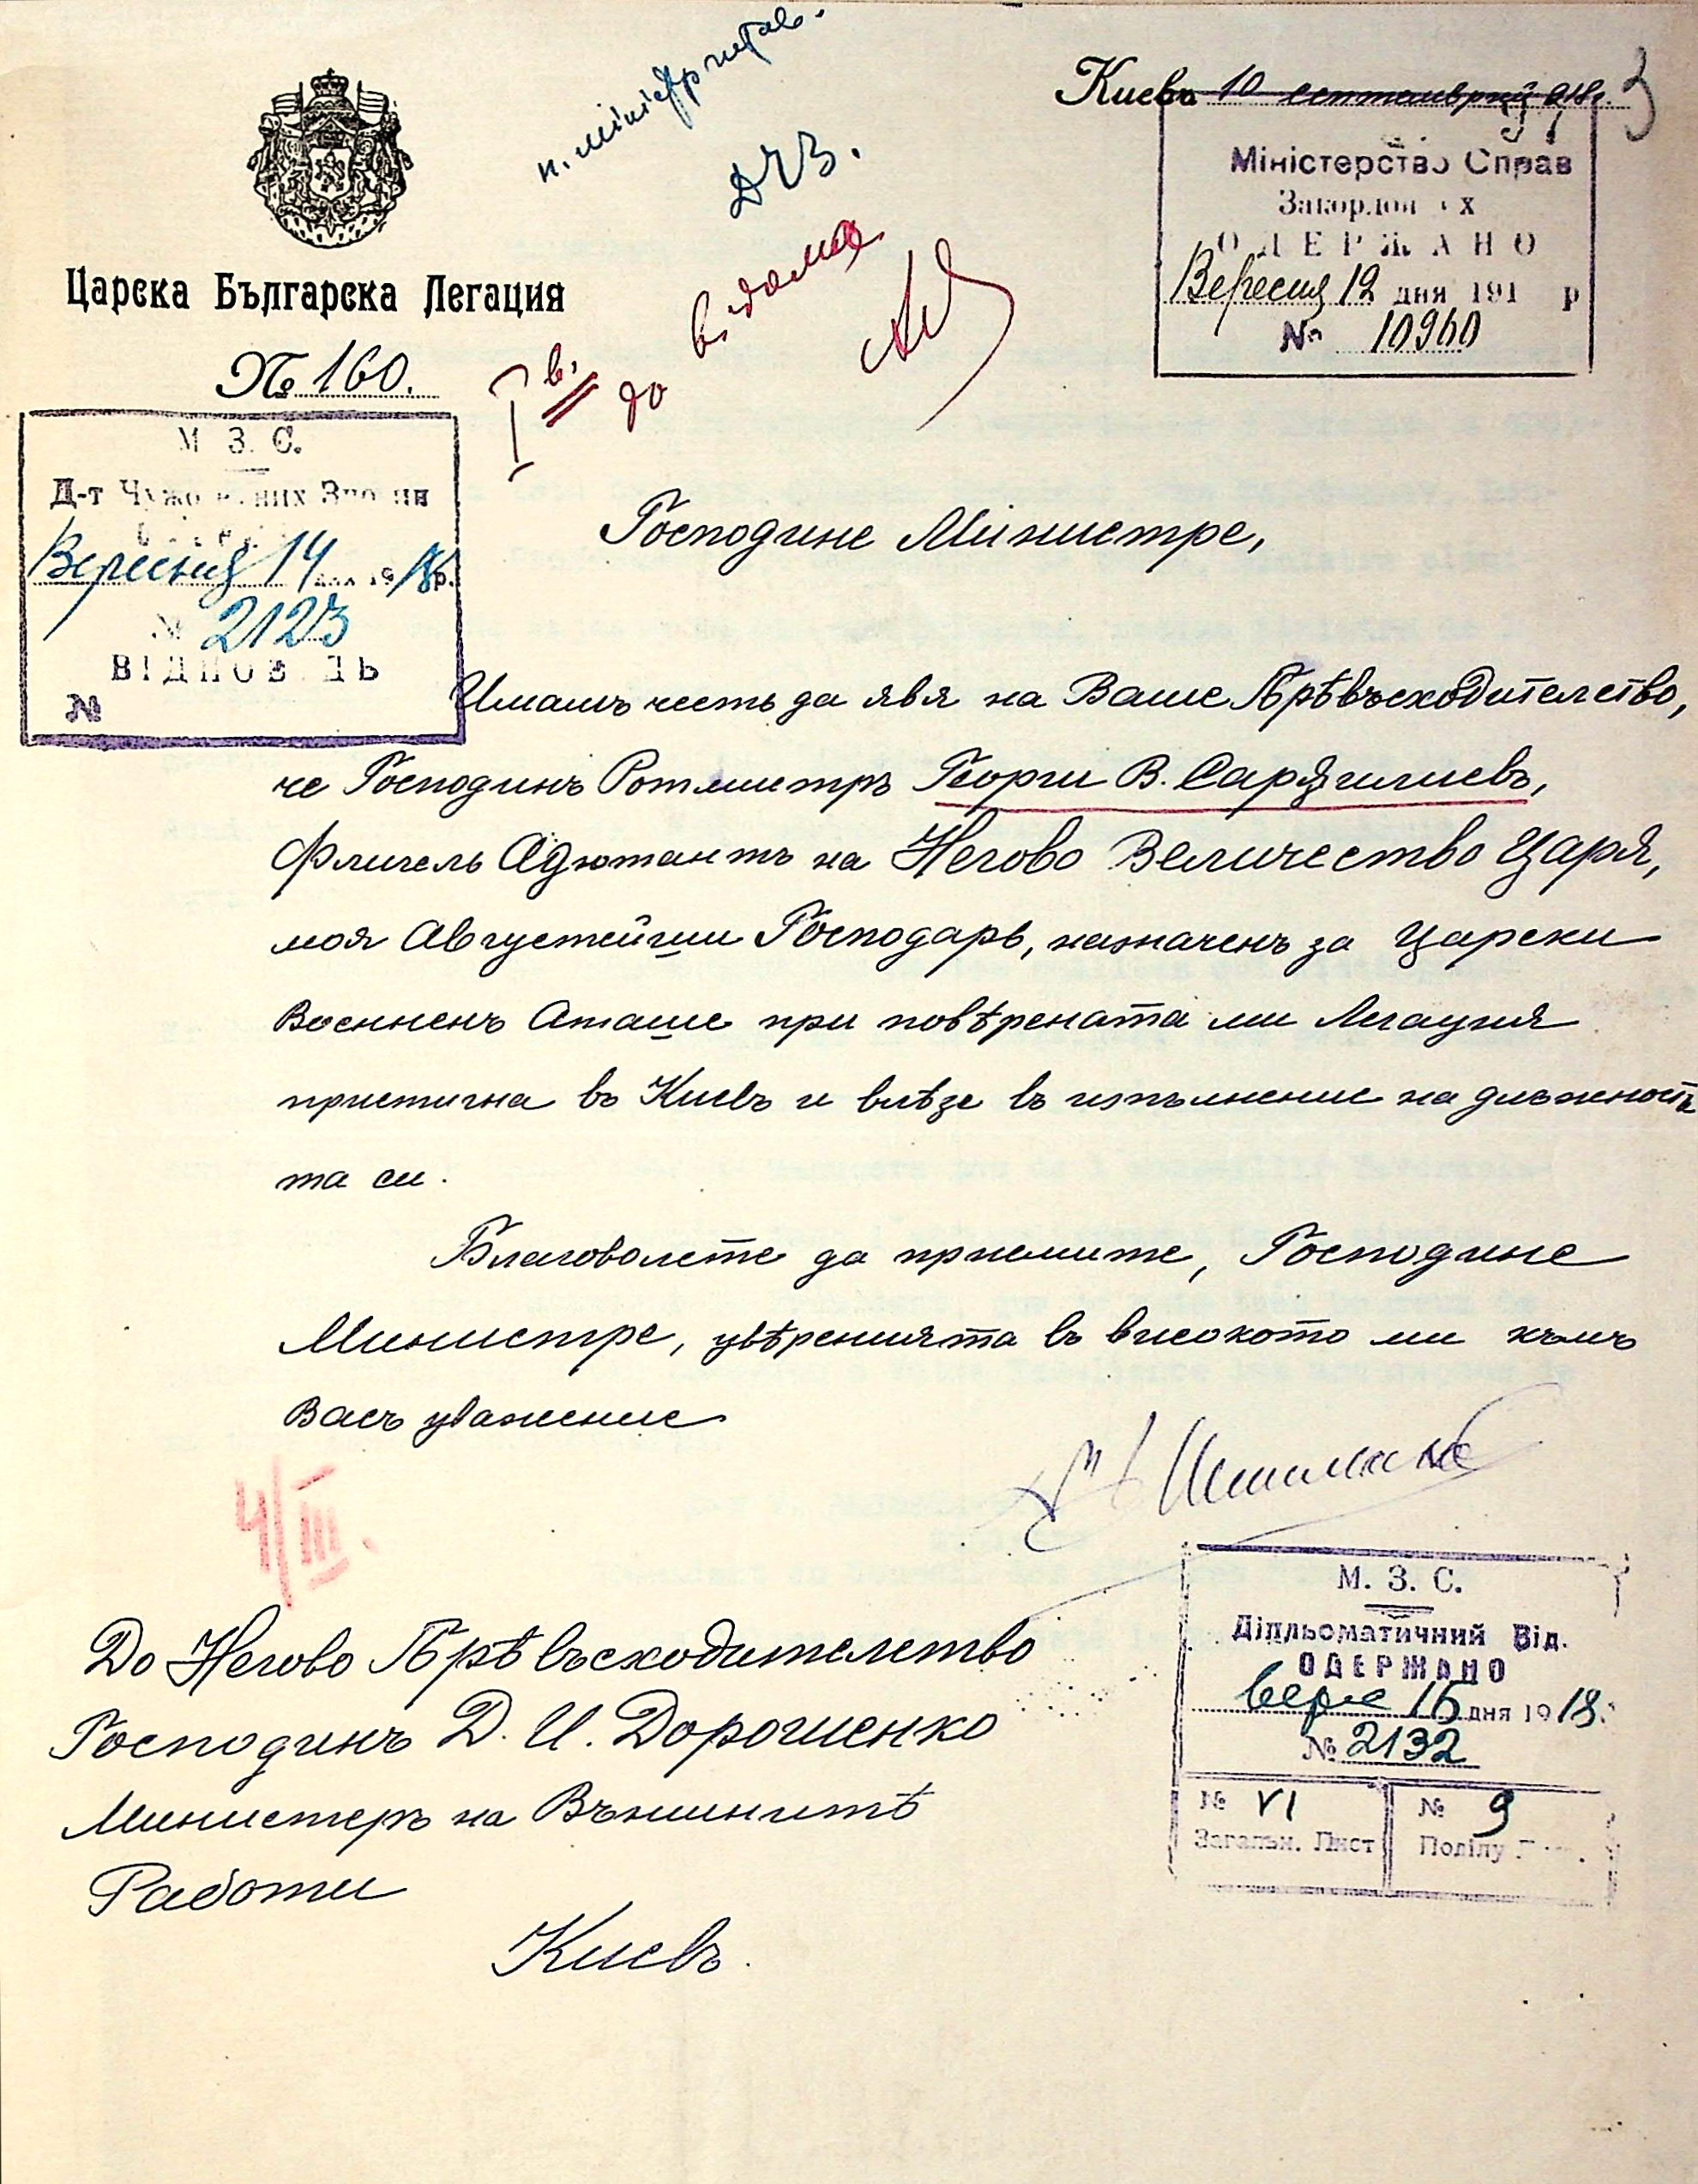 н. міністр читав.
Киевъ 10 септемврий 918 г.
3
ДЧЗ.
Міністерство Справ
Закордон х
ОДЕРЖАНО
Вересня 12 дня 191 р
№ 10960
Царска Българска Легация
№ 160.
І в.
до відома
М. З. С.
Д-т Чужо них Зно ин
Вересня 14 1918 р.
№ 2123
ВІДПОВ ДЬ
№
Господине Министре,
Имамъ честь да явя на Ваше Прѣвъсходителство,
че Господинъ Ротмистръ Георги В. Сарзгилиевъ,
Флигель Адютантъ на Негово Величество Царя,
моя Августейши Господарь, назначенъ за Царски
Военненъ Аташе при повѣрената ми Легация
пристигна въ Киевъ и влѣзе въ изпълнение на длъжность
та си.
Благоволете да приемите, Господине
Министре, увѣренията въ високото ми къмъ
Васъ уважение
Шишманов
4/III.
До Негово Прѣвъсходителство
Господинъ Д. И. Дорошенко
Министеръ на Външнитѣ
Работи
Киевъ.
М. З. С.
Діпльоматичний Від.
ОДЕРЖАНО
вере 16 дня 1918.
№ 2132
№ VI
Загальн. Лист
№ 9
Поділу